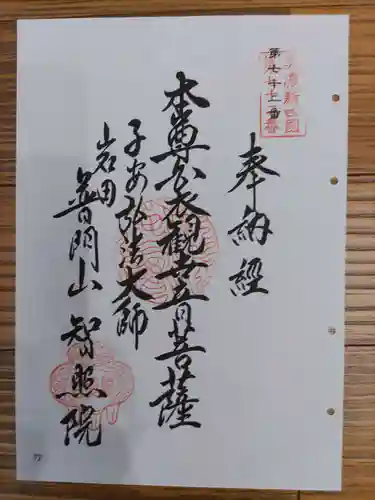 第七十二番
奉納経
本尊白衣観世音菩薩
子安弘法大師
岩田
普門山 智照院
72